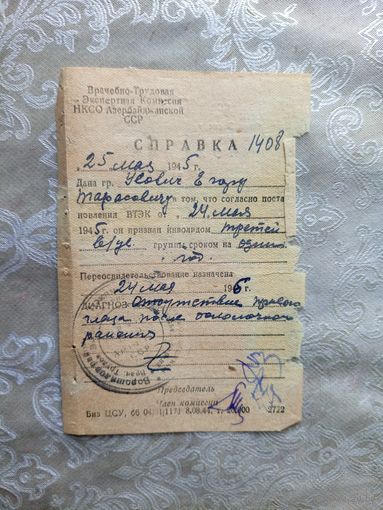 Врачебно-Трудовая
Экспертная Комиссия
НКСО Азербайджанской
ССР
СПРАВКА 1408
"25" мая 1945 г.
Дана гр. Усович Егору
Тарасовичу в том, что согласно поста
новления ВТЭК о 24 мая
1945 он признан инвалидом третей
в/ус. группы сроком на один
год
Переосвидетельствование назначена
24 мая 1946 г.
ДИАГНОЗ отсутствие правого
глаза после осколочного
ранения
Председатель
Член комиссии
Биз ЦСУ, 66 8.08.44 г. 2722